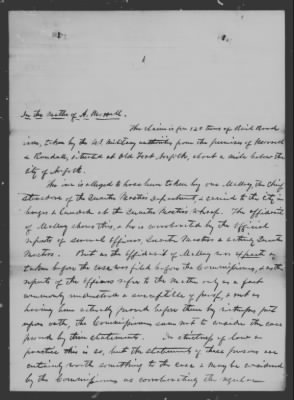 In the matter of A. Mc
The claim is for 120 tons of Rail Road
iron, taken by the US Military authorities from the premises of
& Rondall, situated at Old Fort Norfolk, about a mile below the
City of Norfolk.
The iron is alleged to have been taken by one Melloy, the Chief
of the Quarter Masters department & carried to the city in
barges & landed at the Quarter Masters Wharf. The affidavit
of Melloy shows this, & he is corroborated by the official
reports of several officers, Quarter Masters & acting Quarter
Masters. But as the affidavit of Melloy was
taken before the case was filed before the Commissioners, & as the
reports of the officers refer to the matter only as a fact
commonly understood & susceptible of proof, & not as
having been actually proved before them by witnesses put
upon oath, the Commissioners seem not to consider the case
proved by these statements. In strictness of law &
practice this is so, but the statements of these persons are
certainly worth something to the case & may be considered
by the Commissioners as corroborating the